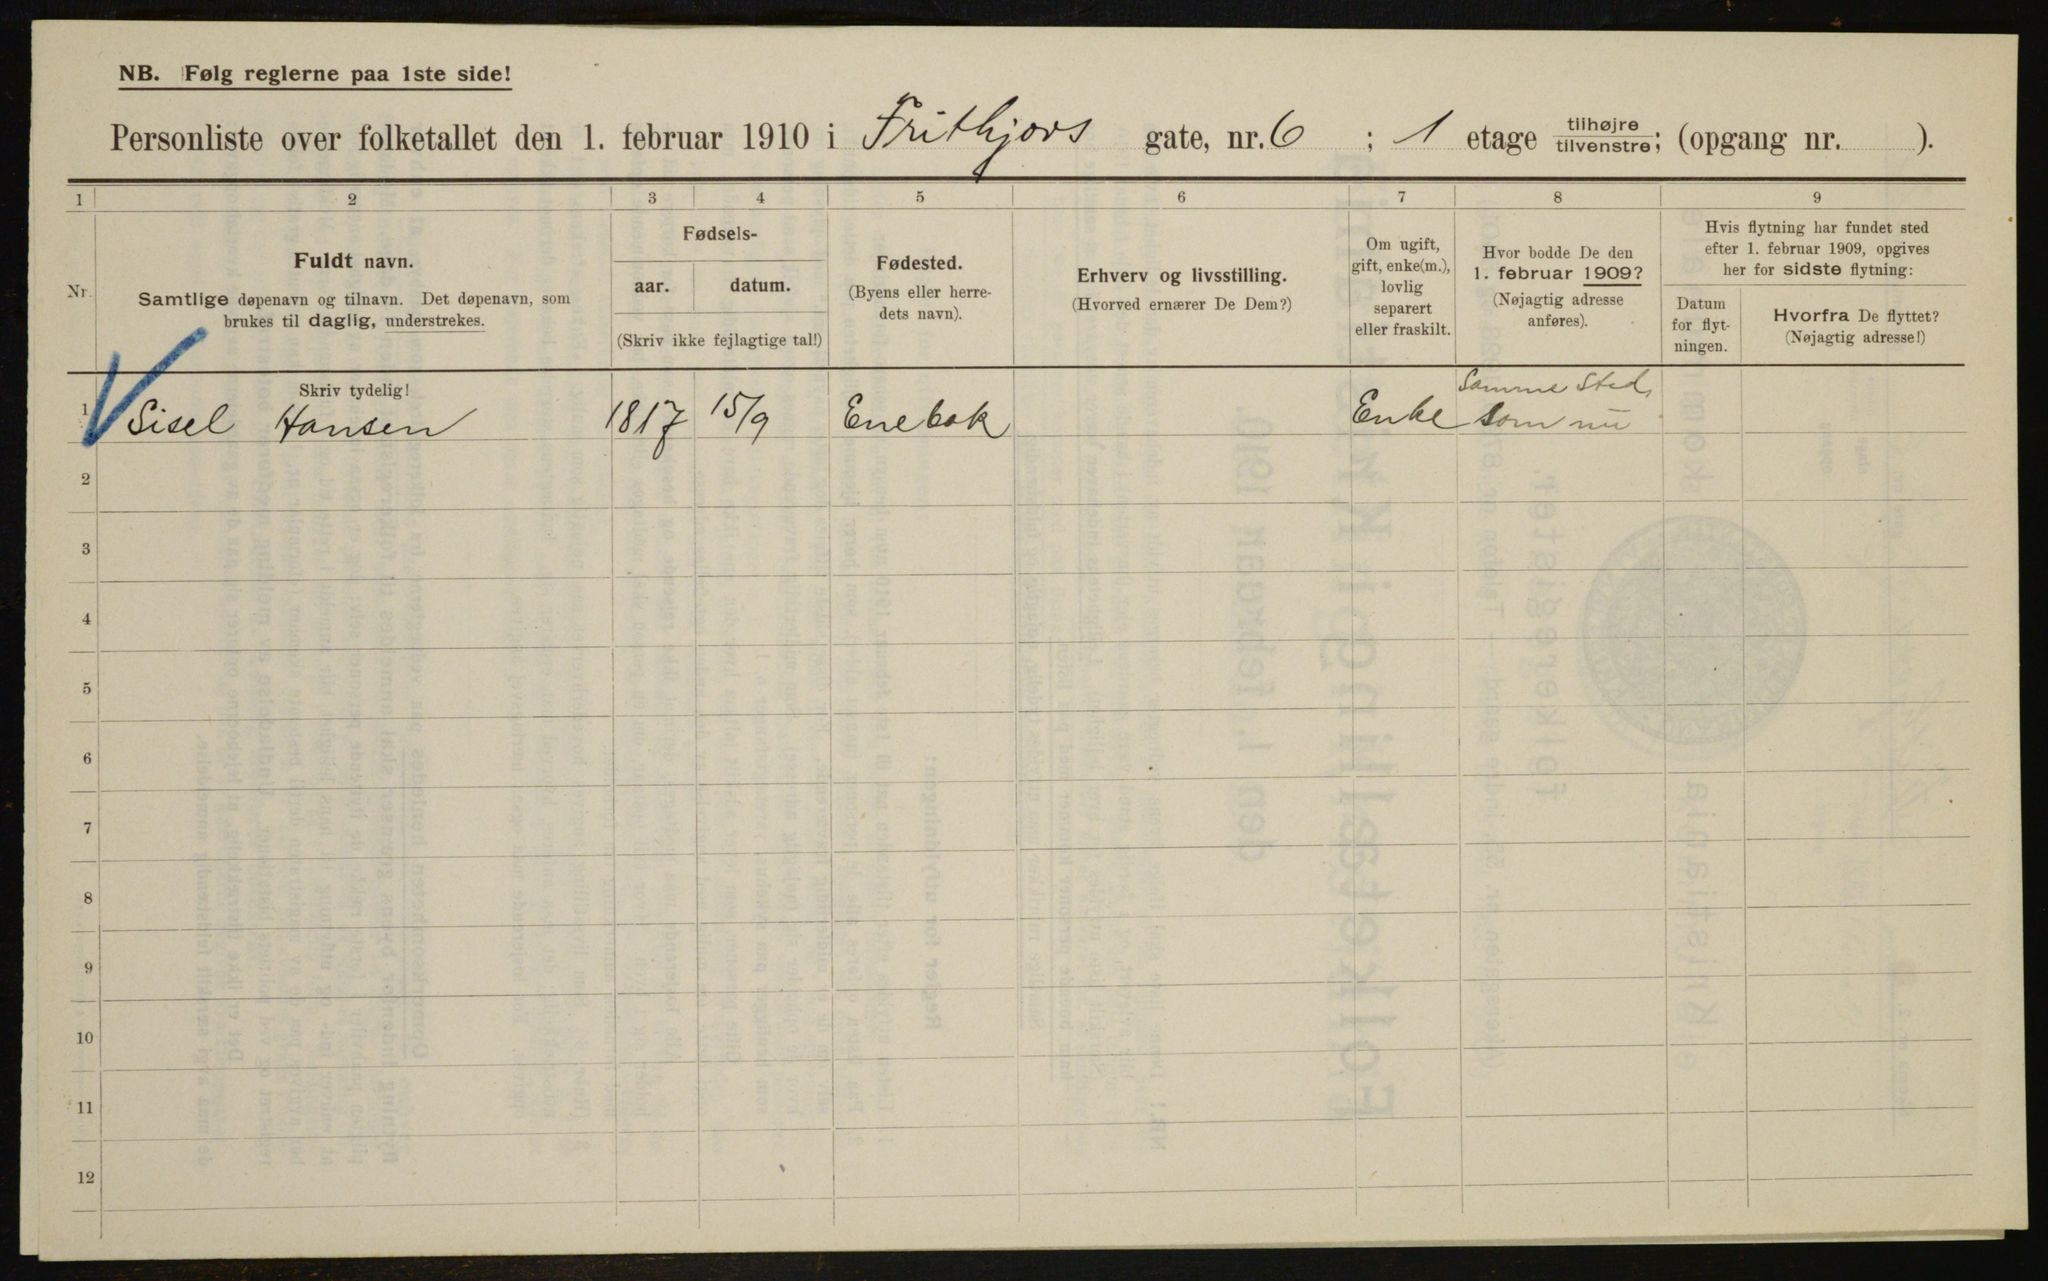 NB. Følg reglerne paa 1ste side!
Personliste over folketallet den 1. februar 1910 i Frithjovs gate, nr. 6 ; 1 etage tilhøjre tilvenstre; (opgang nr. ).
1 2 3 4 5 6 7 8 9
Nr.
Fuldt navn.
Samtlige døpenavn og tilnavn. Det døpenavn, som
brukes til daglig, understrekes.
Fødsels-
aar. datum.
(Skriv ikke fejlagtige tal!)
Fødested.
(Byens eller herre-
dets navn).
Erhverv og livsstilling.
(Hvorved ernærer De Dem?)
Om ugift,
gift, enke(m.),
lovlig
separert
eller fraskilt.
Hvor bodde De den
1. februar 1909?
(Nøjagtig adresse
anføres).
Hvis flytning har fundet sted
efter 1. februar 1909, opgives
her for sidste flytning:
Datum
for flyt-
ningen.
Hvorfra De flyttet?
(Nøjagtig adresse!)
Skriv tydelig!
Samme Sted,
1 Sisel Hansen 1817 15/9 Enebak Enke som nu
2
3
4
5
6
7
8
9
10
11
12